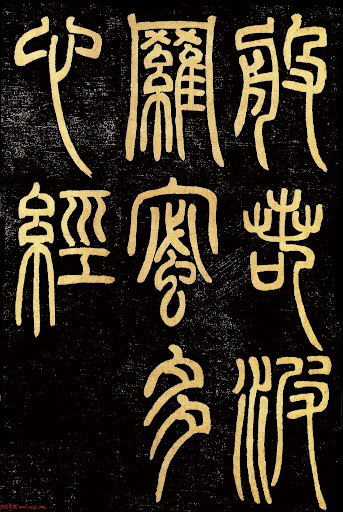 般若波
羅蜜多
心經